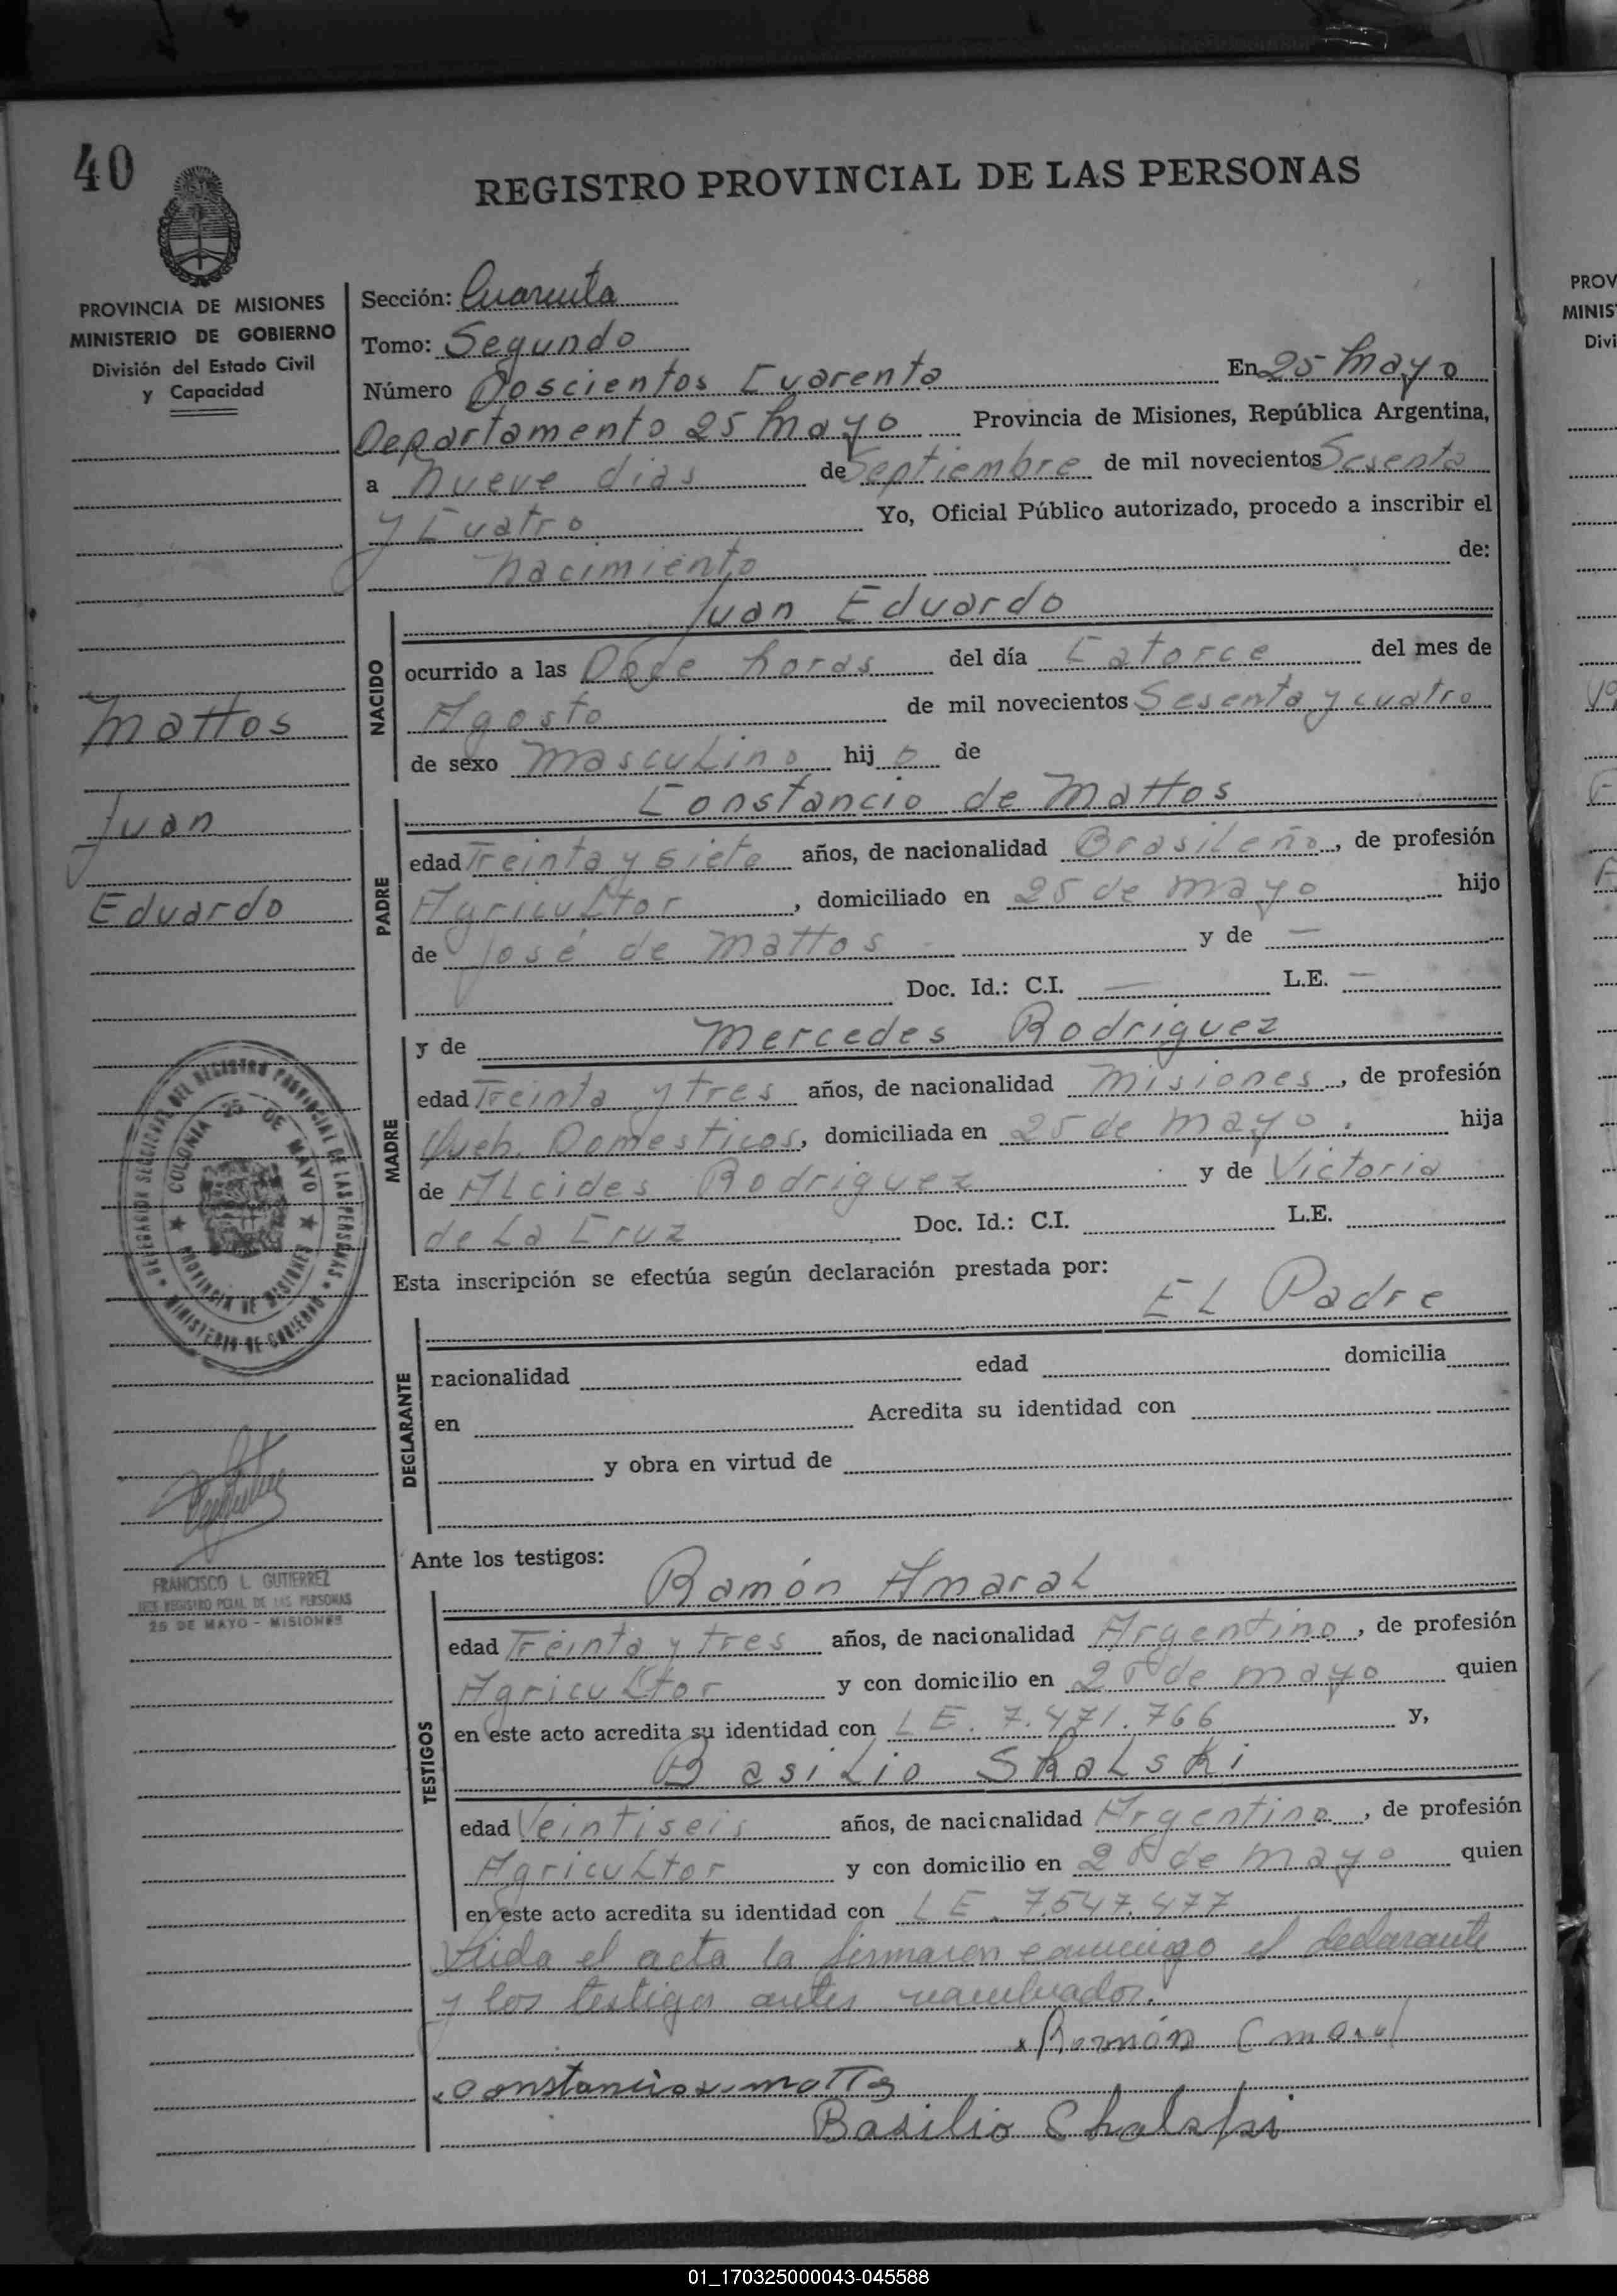 40
REGISTRO PROVINCIAL DE LAS PERSONAS
PROVINCIA DE MISIONES
MINISTERIO DE GOBIERNO
División del Estado Civil
y Capacidad
Sección: Cuarenta
Tomo: Segundo
Número Doscientos Cuarenta En 25 Mayo
Departamento 25 Mayo Provincia de Misiones, República Argentina,
a Nueve dias de Septiembre de mil novecientos Sesenta
y Cuatro Yo, Oficial Público autorizado, procedo a inscribir el
Nacimiento de:
NACIDO
Juan Eduardo
ocurrido a las Doce horas del día Catorce del mes de
Agosto de mil novecientos Sesenta y cuatro
de sexo Masculino hijo de
Mattos
Juan
Eduardo
PADRE
Constancio de Mattos
edad Treinta y siete años, de nacionalidad Brasileño, de profesión
Agricultor, domiciliado en 25 de mayo hijo
de José de Mattos y de —
Doc. Id.: C.I. — L.E. —
MADRE
y de Mercedes Rodriguez
edad Treinta y tres años, de nacionalidad Misiones, de profesión
Queh. Domesticos, domiciliada en 25 de mayo. hija
de Alcides Rodriguez y de Victoria
de La Cruz Doc. Id.: C.I. L.E.
DELEGACION SECCIONAL DEL REGISTRO PROVINCIAL DE LAS PERSONAS
COLONIA 25 DE MAYO
PROVINCIA DE MISIONES
MINISTERIO DE GOBIERNO
Esta inscripción se efectúa según declaración prestada por:
El Padre
DECLARANTE
nacionalidad edad domicilia
en Acredita su identidad con
y obra en virtud de
FRANCISCO L. GUTIERREZ
JEFE REGISTRO PCIAL DE LAS PERSONAS
25 DE MAYO - MISIONES
Ante los testigos:
TESTIGOS
Ramón Amaral
edad Treinta y tres años, de nacionalidad Argentino, de profesión
Agricultor y con domicilio en 25 de mayo quien
en este acto acredita su identidad con LE. 7.471.766 y,
Basilio Skalski
edad Veintiseis años, de nacionalidad Argentino, de profesión
Agricultor y con domicilio en 25 de mayo quien
en este acto acredita su identidad con LE. 7.547.477
Leida el acta la firmaron conmigo el declarante
y los testigos antes nombrados.
Ramón Amaral
Basilio Skalski
01_170325000043-045588